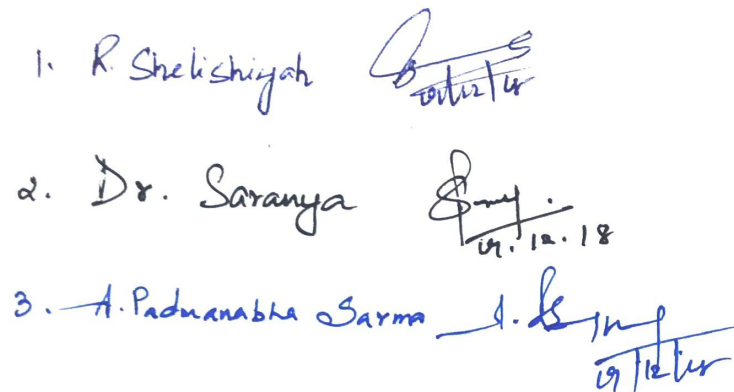 1. R. Shelishiyah 19/12/18
2. Dr. Saranya 19.12.18
3. A. Padmanabha Sarma 19/12/18